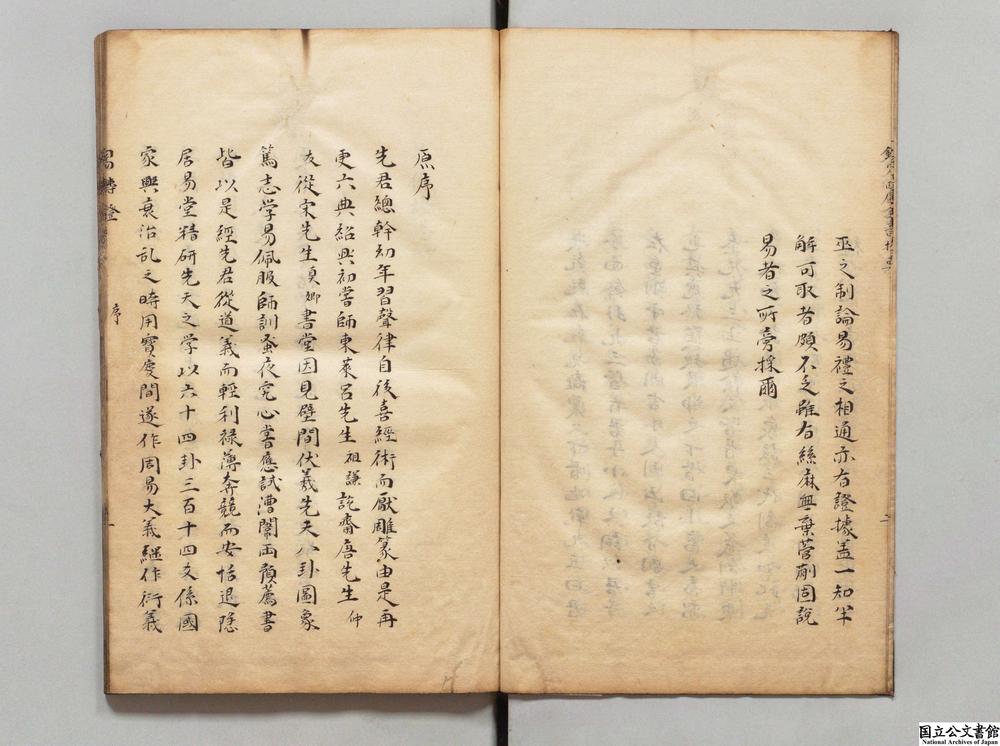 巫之制論易禮之相通亦有證據盖一知半
解可取者頗不乏雖有絲麻無棄菅蒯固説
易者之所旁採爾
原序
先君總幹幼年習聲律自後喜經術而厭雕篆由是再
更六典紹興初嘗師東萊呂先生祖謙説齋唐先生仲
友從宋先生貞卿書堂因見壁間伏羲先天八卦圖象
篤志学易佩服師訓蚤夜究心嘗應試漕闈両預薦書
皆以是經先君從道義而輕利禄薄奔競而安恬退隐
居易堂精研先天之学以六十四卦三百十四爻係國
家興衰治乱之時用寳慶間遂作周易大義継作衍義
序
国立公文書館
National Archives of Japan